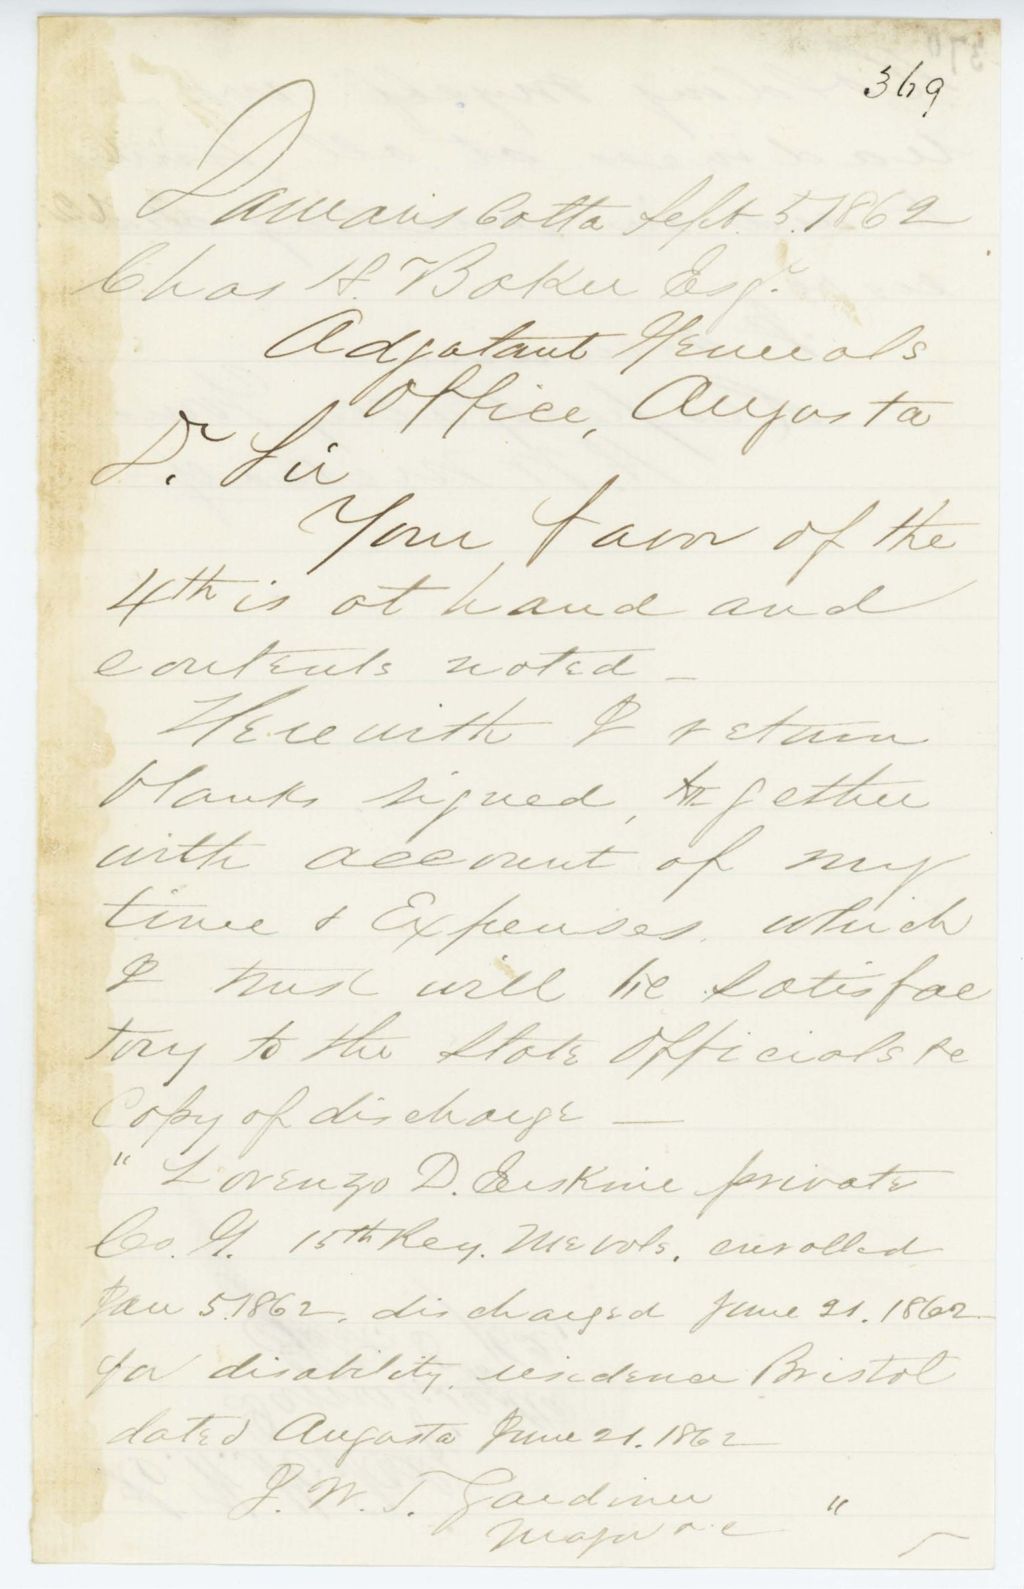 369
Damariscotta Sept. 5. 1862
Chas H. Baker Esqr.
Adjutant Generals
Office, Augusta
Dr. Sir
Your favor of the
4th is at hand and
contents noted _
Herewith I return
blanks signed, together
with account of my
time & Expenses. which
I trust will be satisfac
tory to the State Officials &c
Copy of discharge —
" Lorenzo D. Erskine private
Co. G. 15th Reg. Me Vols. enrolled
Jan 5. 1862. discharged June 21. 1862
for disability. residence Bristol
dated Augusta June 21. 1862
J. W. T. Gardiner "
Major &c